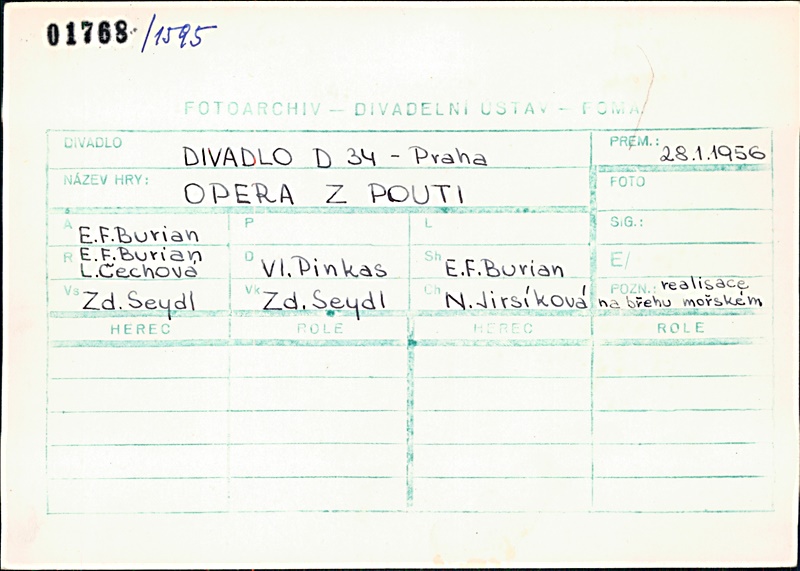 01768 /1595
FOTOARCHIV – DIVADELNÍ ÚSTAV – FOMA
DIVADLO DIVADLO D 34 - Praha PREM.: 28.1.1956
NÁZEV HRY: OPERA Z POUTI FOTO
A E.F.Burian P L SIG.:
R E.F.Burian
L.Čechová D Vl.Pinkas Sh E.F.Burian E/
Vs Zd.Seydl Vk Zd.Seydl Ch N.Jirsíková POZN.: realisace
na břehu mořském
HEREC ROLE HEREC ROLE